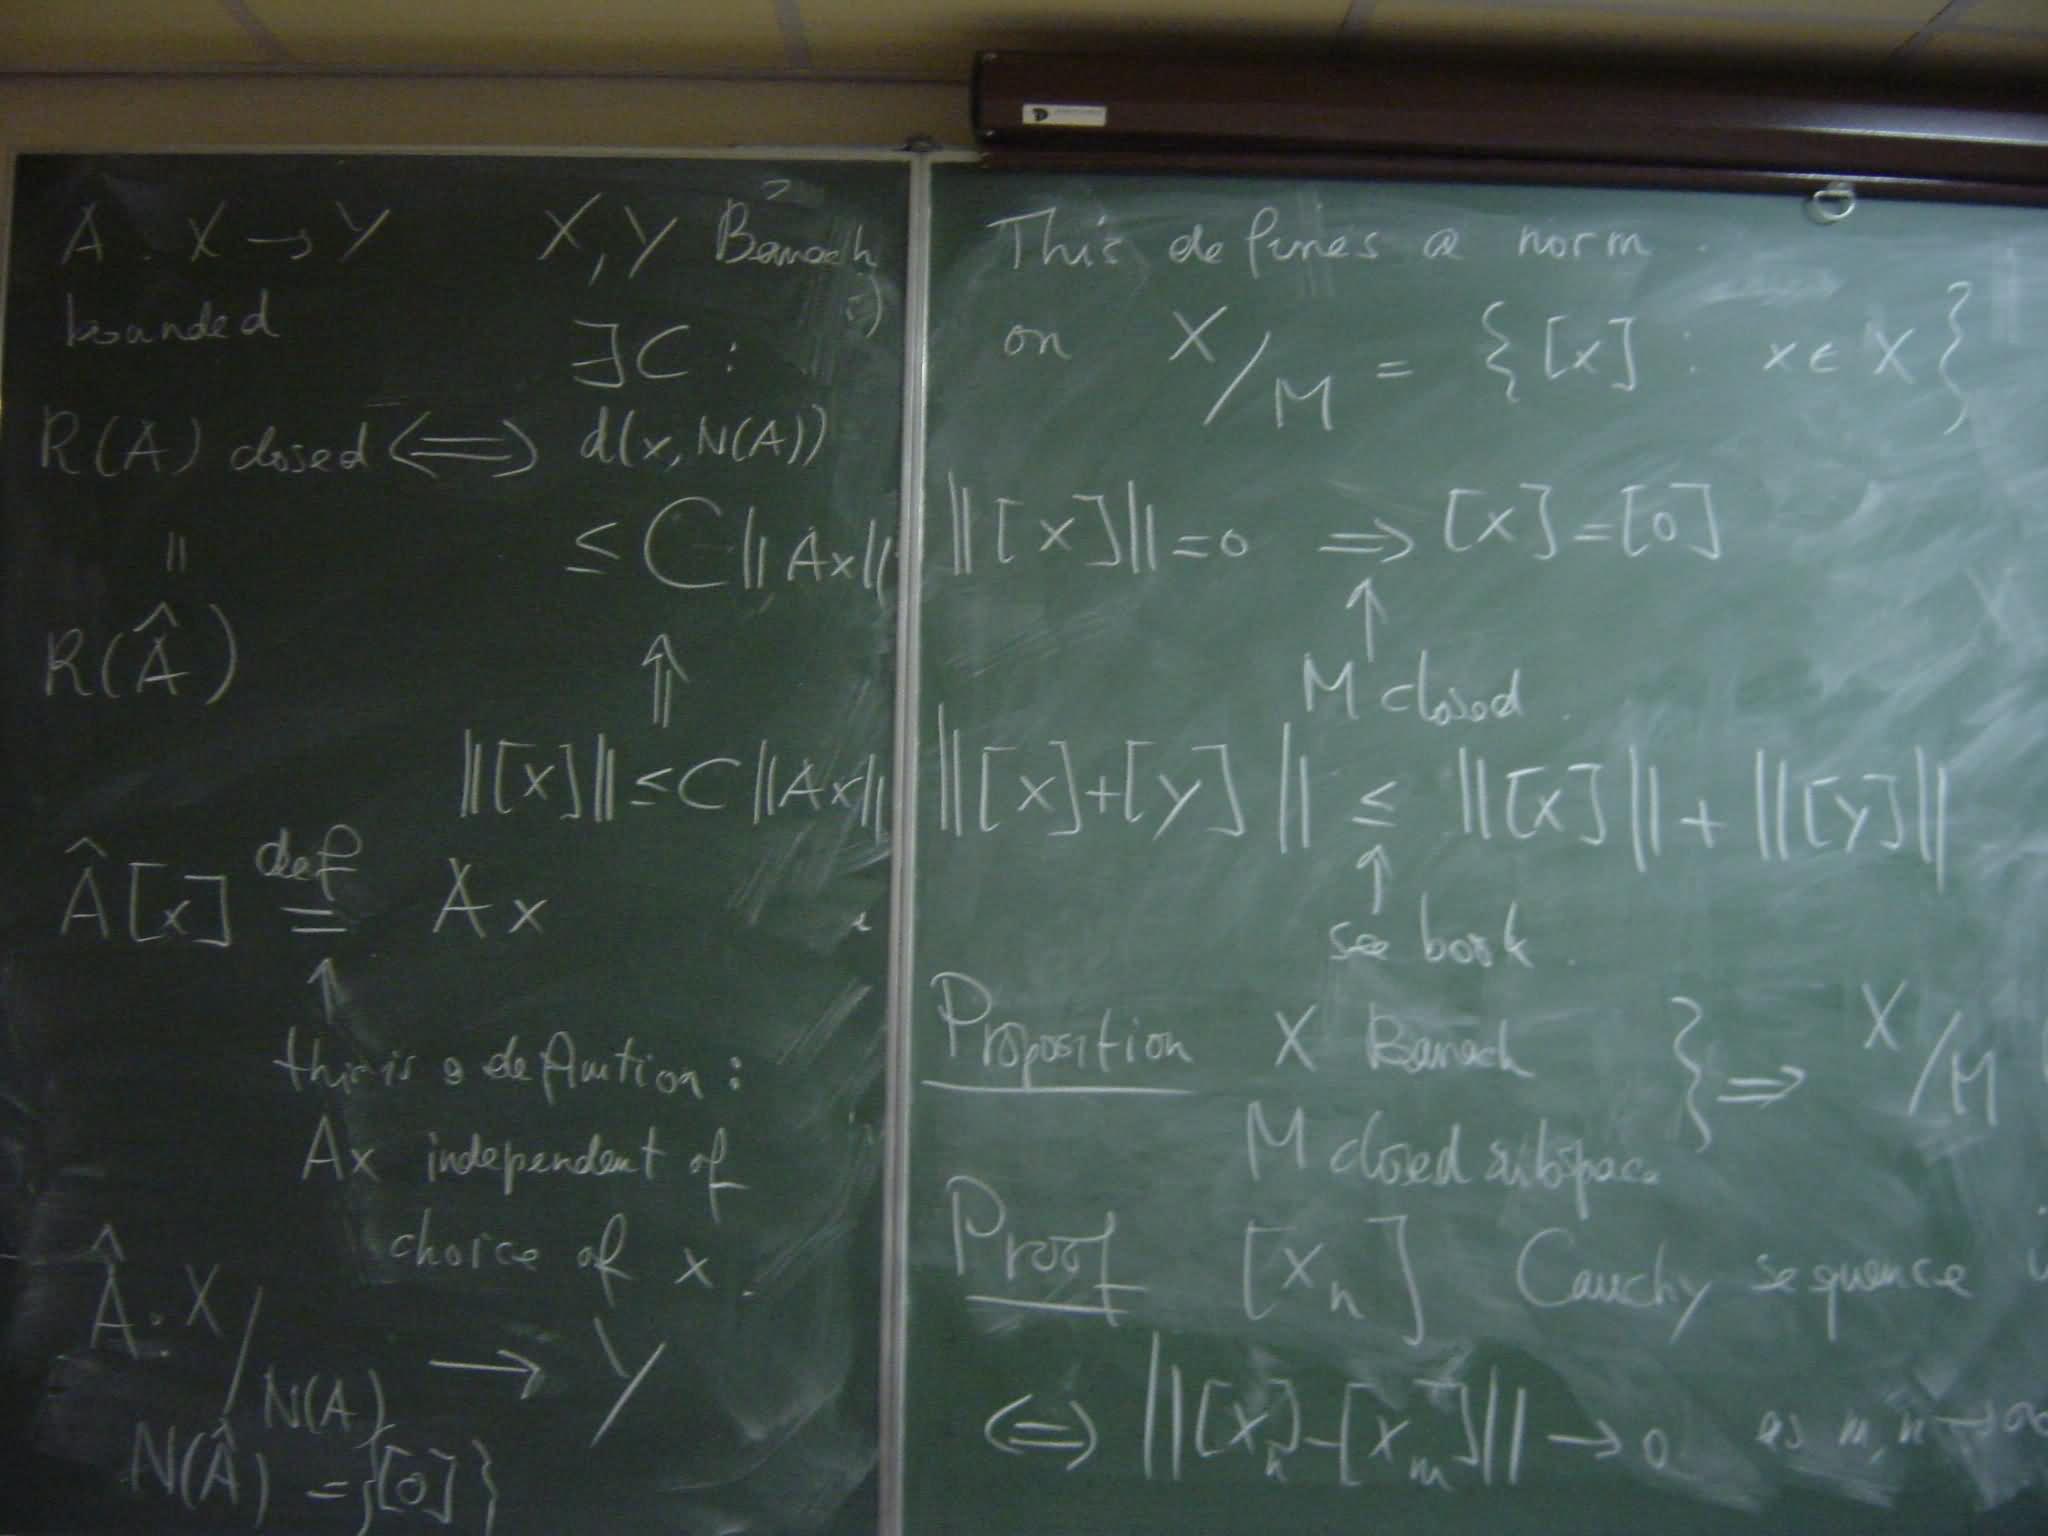 A : X → Y X, Y Banach
bounded ∃C :
R(A) closed ⟺ d(x, N(A))
= ≤ C ||Ax||
R(Â) ⇑
||[x]|| ≤ C ||Ax||
Â[x] def= Ax
↑
this is a definition :
Ax independent of
choice of x .
 : X/N(A) → Y
N(Â) = {[0]}
This defines a norm .
on X/M = { [x] : x ∈ X }
||[x]|| = 0 ⇒ [x] = [0]
↑
M closed .
||[x]+[y]|| ≤ ||[x]|| + ||[y]||
↑
see book .
Proposition X Banach } ⇒ X/M
M closed subspace
Proof [xn] Cauchy sequence
⟺ ||[xn] - [xm]|| → 0 as m, n → ∞